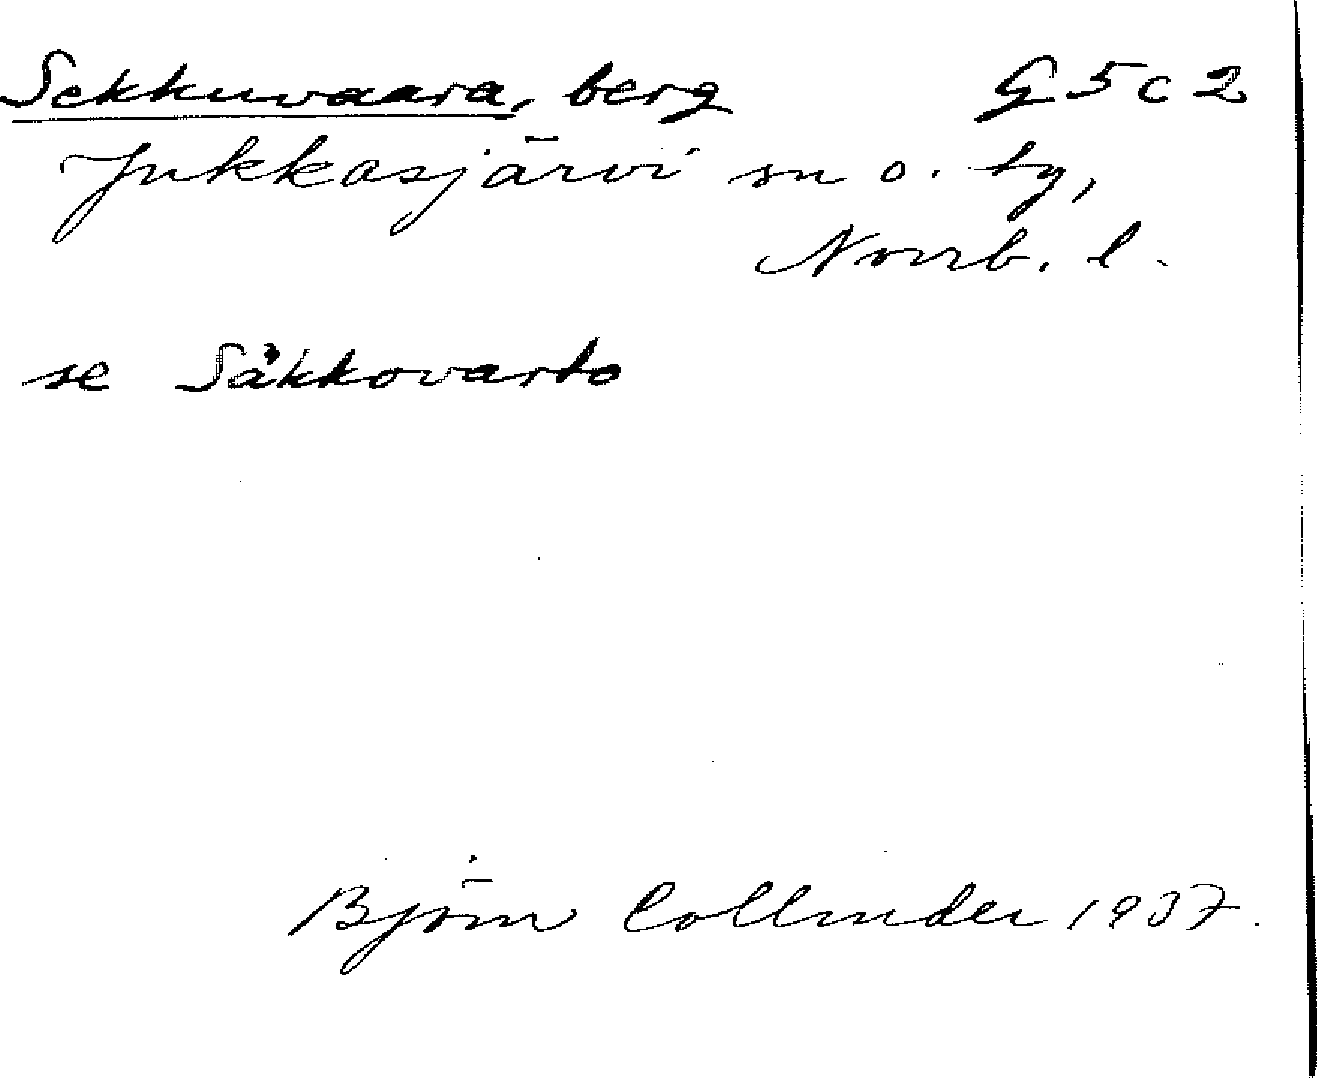 Sekkuvaara, berg G 5 c 2
Jukkasjärvi sn o. tg,
Norrb. l.
se Såkkovarto
Björn Collinder 1937.